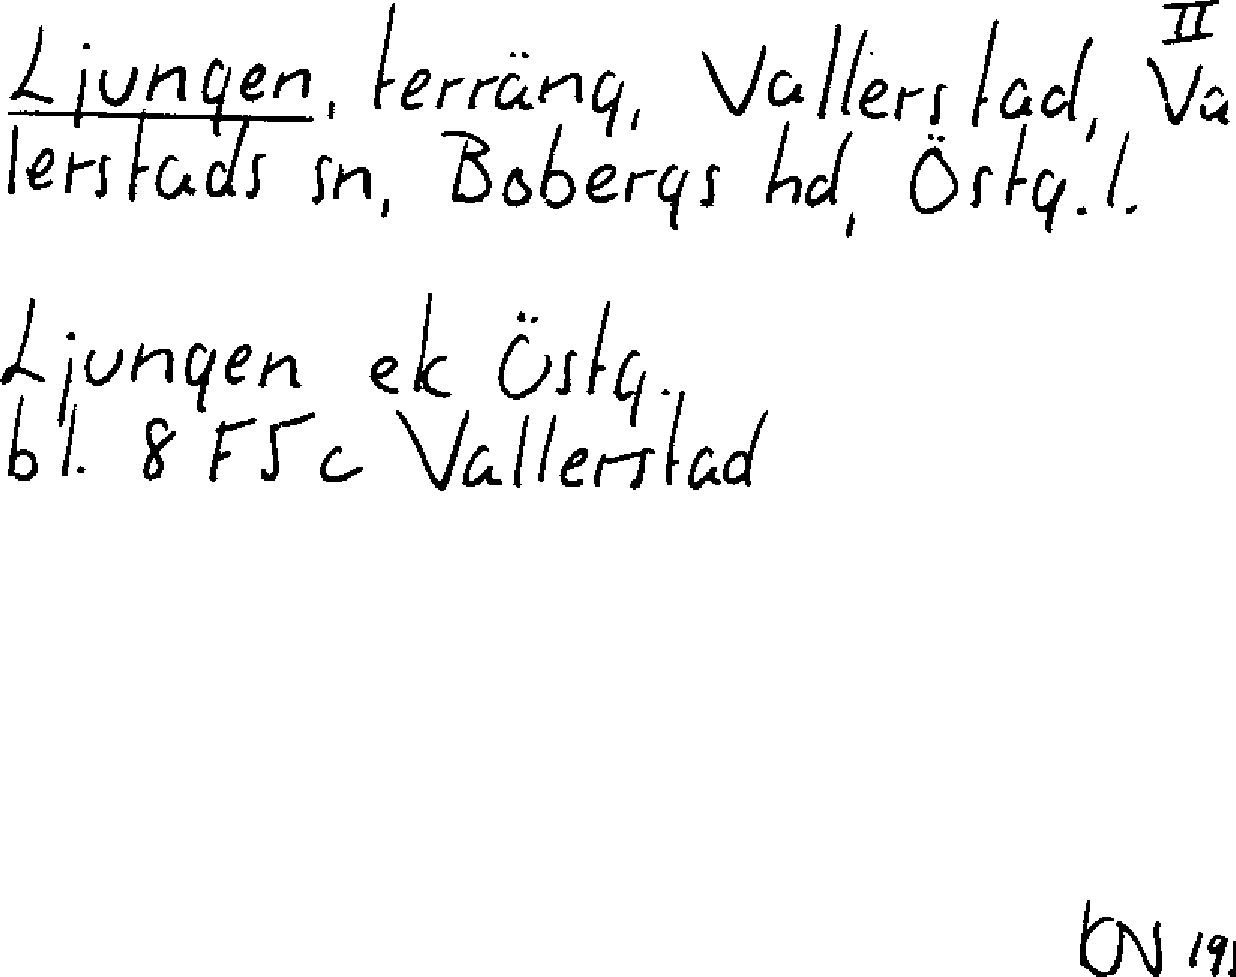 II
Ljungen, terräng, Vallerstad, Va
lerstads sn, Bobergs hd, Östg. l.
Ljungen ek Östg.
bl. 8 F5c Vallerstad